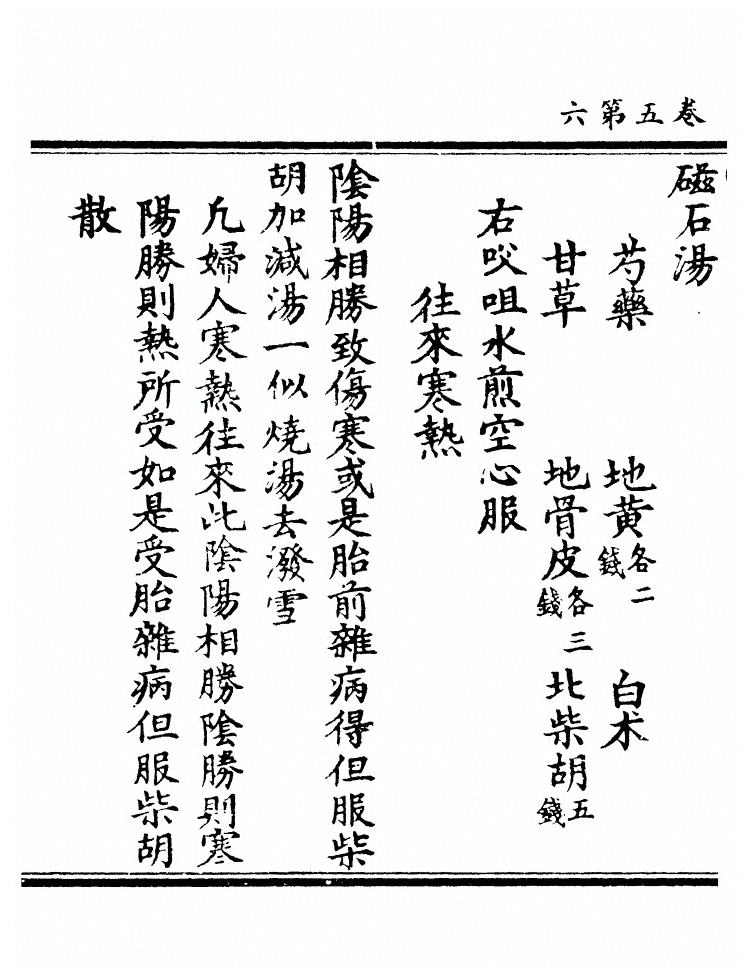 卷五第六
磁石湯
芍藥 地黄各二錢 白术
甘草 地骨皮各三錢 北柴胡五錢
右咬咀水煎空心服
往來寒熱
陰陽相勝致傷寒或是胎前雜病得但服柴
胡加減湯一似燒湯去潑雪
凡婦人寒熱往來此陰陽相勝陰勝則寒
陽勝則熱所受如是受胎雜病但服柴胡
散